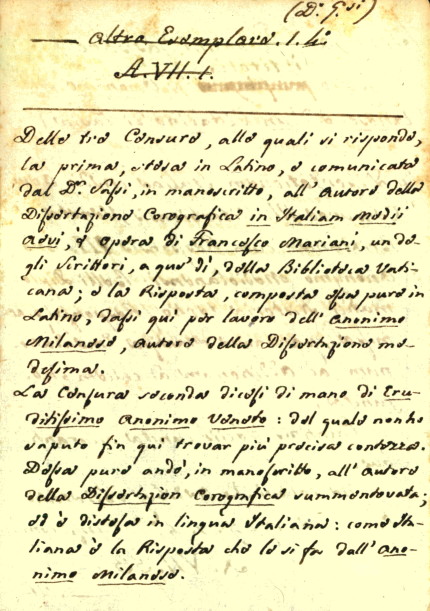 (D. G.si)
Altro Esemplare. I. h.
A. VII. 1.
Delle tre Censure, alle quali si risponde,
la prima, stesa in Latino, e comunicata
dal Dr. Sassi, in manoscritto, all' Autore della
Dissertazione Corografica in Italiam Medii
Aevi, è opera di Francesco Mariani, un de
gli Scrittori, a que' dì, della Biblioteca Vati-
cana; e la Risposta, composta essa pure in
Latino, dassi qui per lavoro dell' Anonimo
Milanese, autore della Dissertazione me-
desima.
La Censura seconda dicesi di mano di Eru-
ditissimo Anonimo Veneto: del quale non ho
saputo fin qui trovar più precisa contezza.
Dessa pure andò, in manoscritto, all' Autore
della Dissertazion Corografica summentovata;
ed è distesa in lingua Italiana: come Ita-
liana è la Risposta che le si fa dall' Ano-
nimo Milanese.